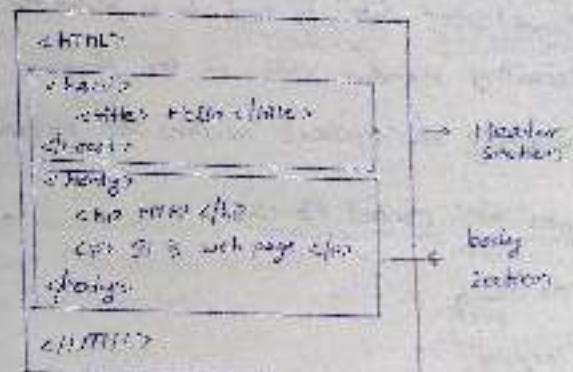 <HTML>
<head>
<title> Hello </title>
</head>
<body>
<h1> HTML </h1>
<p> It is web page </p>
</body>
</HTML>
Header
section
body
section